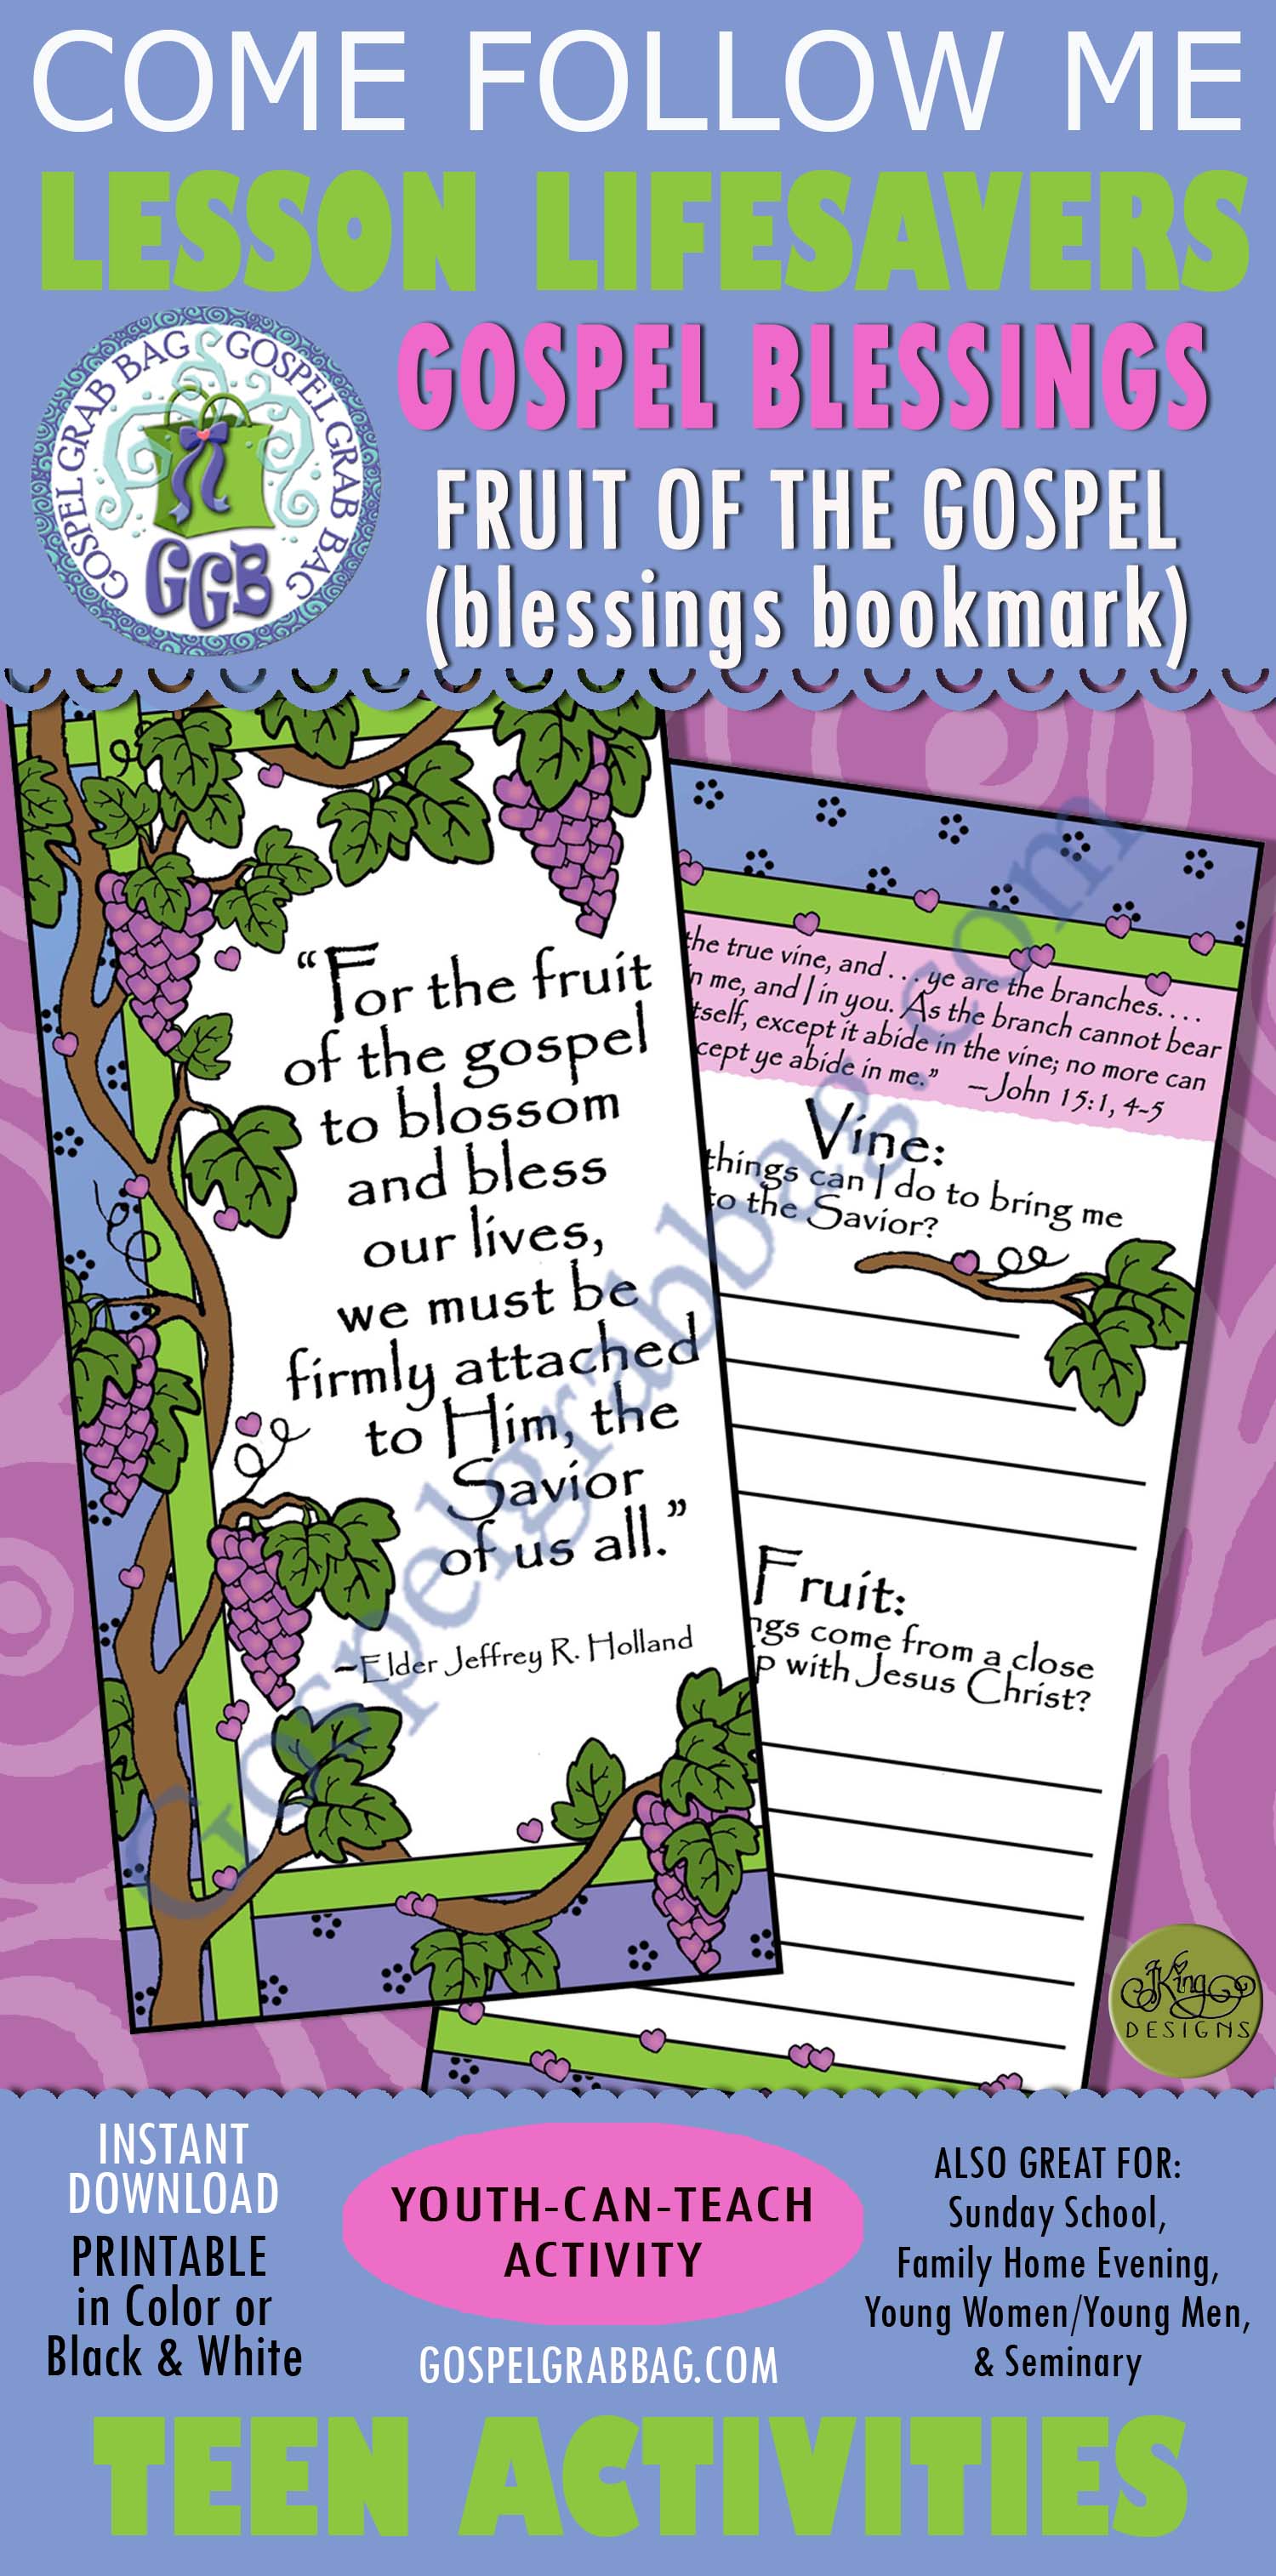 COME FOLLOW ME
LESSON LIFESAVERS
GOSPEL GRAB BAG GOSPEL GRAB BAG
GGB
GOSPEL BLESSINGS
FRUIT OF THE GOSPEL
(blessings bookmark)
“For the fruit
of the gospel
to blossom
and bless
our lives,
we must be
firmly attached
to Him, the
Savior
of us all.”
~Elder Jeffrey R. Holland
the true vine, and . . . ye are the branches. . . .
n me, and I in you. As the branch cannot bear
tself, except it abide in the vine; no more can
cept ye abide in me.” ~John 15:1, 4-5
Vine:
things can I do to bring me
to the Savior?
Fruit:
ngs come from a close
p with Jesus Christ?
Gospelgrabbag.com
JKing
DESIGNS
INSTANT
DOWNLOAD
PRINTABLE
in Color or
Black & White
YOUTH-CAN-TEACH
ACTIVITY
GOSPELGRABBAG.COM
ALSO GREAT FOR:
Sunday School,
Family Home Evening,
Young Women/Young Men,
& Seminary
TEEN ACTIVITIES